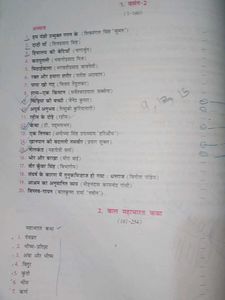 1. वसंत-2
अध्याय
1. हम पंछी उन्मुक्त गगन के (शिवमंगल सिंह 'सुमन')
2. दादी माँ (शिवप्रसाद सिंह)
3. हिमालय की बेटियाँ (नागार्जुन)
4. कठपुतली (भवानीप्रसाद मिश्र)
5. मिठाईवाला (भगवतीप्रसाद वाजपेयी)
6. रक्त और हमारा शरीर (यतीश अग्रवाल)
7. पापा खो गए (विजय तेंदुलकर)
8. शाम-एक किसान (सर्वेश्वरदयाल सक्सेना)
9. चिड़िया की बच्ची (जैनेंद्र कुमार)
10. अपूर्व अनुभव (तेत्सुको कुरियानागी)
11. रहीम के दोहे (रहीम)
12. कंचा (टी. पद्मनाभन)
13. एक तिनका (अयोध्या सिंह उपाध्याय 'हरिऔध')
14. खानपान की बदलती तसवीर (प्रयाग शुक्ल)
15. नीलकंठ (महादेवी वर्मा)
16. भोर और बरखा (मीरा बाई)
17. वीर कुँवर सिंह (विभागीय)
18. संघर्ष के कारण मैं तुनुकमिज़ाज हो गया : धनराज (विनीता पाण्डेय)
19. आश्रम का अनुमानित व्यय (मोहनदास करमचंद गांधी)
20. विप्लव-गायन (बालकृष्ण शर्मा 'नवीन')
2. बाल महाभारत कथा
महाभारत कथा
1. देवव्रत
2. भीष्म-प्रतिज्ञा
3. अंबा और भीष्म
4. विदुर
5. कुंती
6. भीम
7. कर्ण